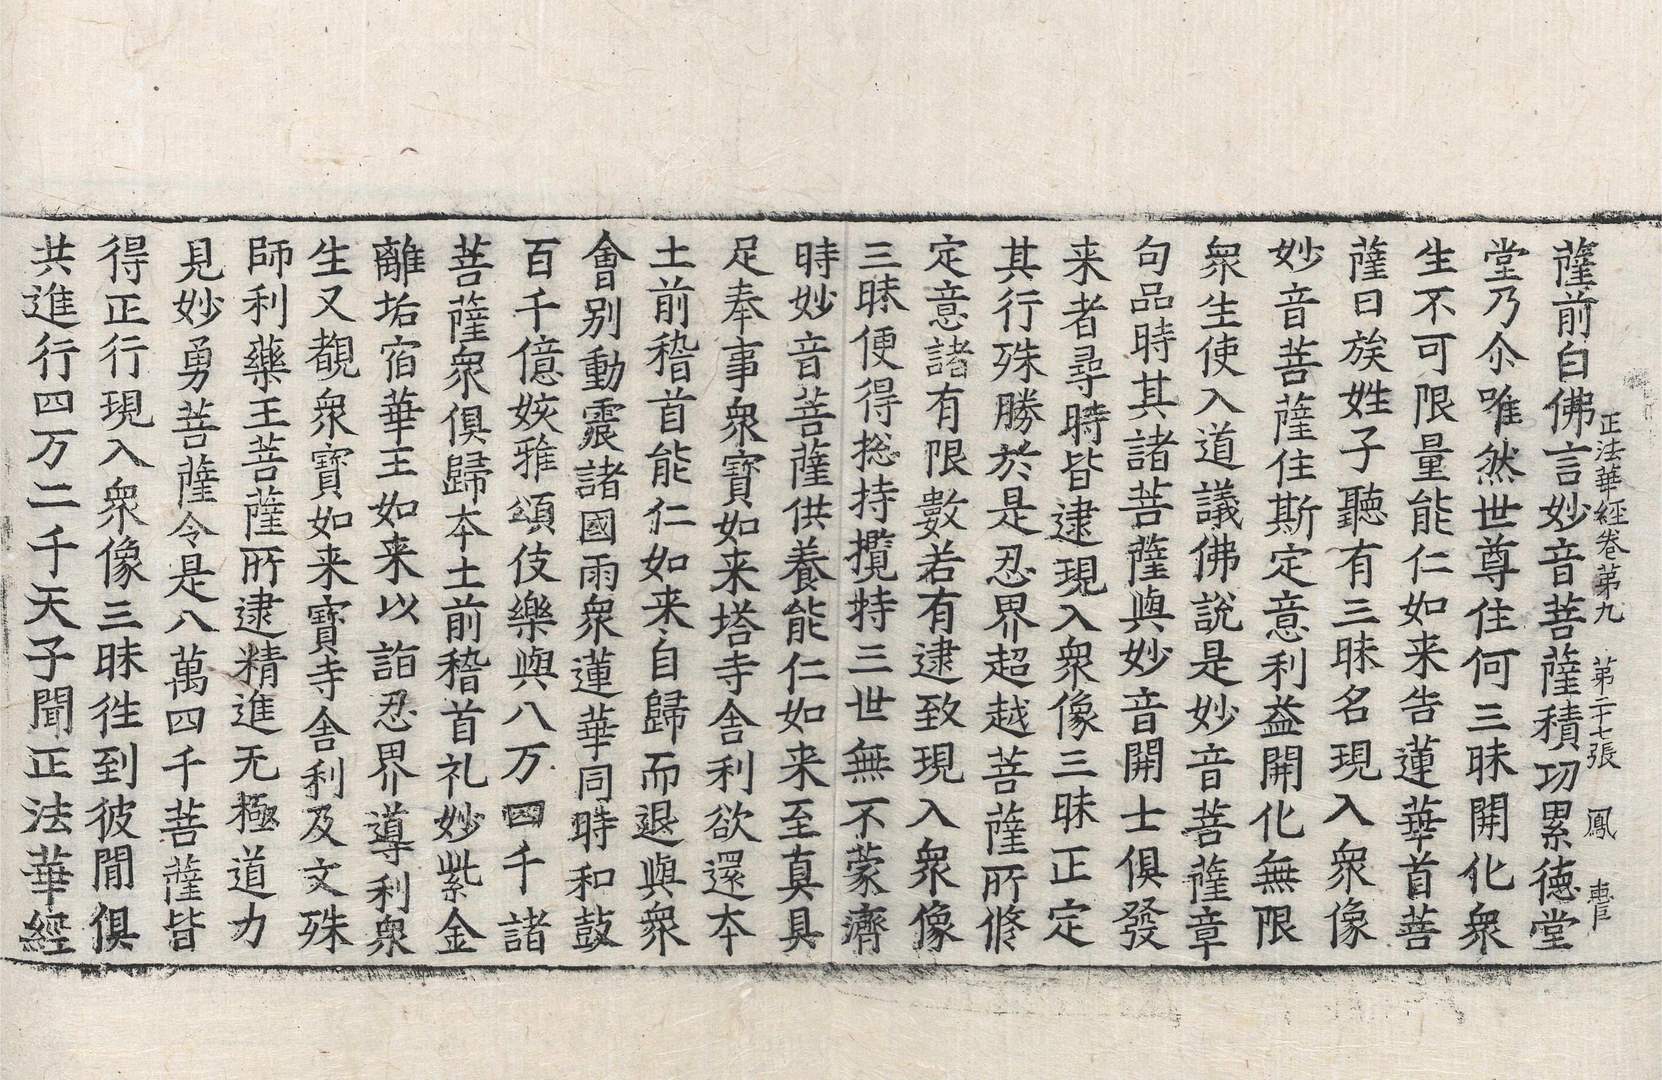 正法華經卷第九 第二十七張 鳳
薩前白佛言妙音菩薩積功累德堂
堂乃尒唯然世尊住何三昧開化衆
生不可限量能仁如来告蓮華首菩
薩曰族姓子聽有三昧名現入衆像
妙音菩薩住斯定意利益開化無限
衆生使入道議佛說是妙音菩薩章
句品時其諸菩薩與妙音開士俱發
来者尋時皆逮現入衆像三昧正定
其行殊勝於是忍界超越菩薩所修
定意諸有限數若有逮致現入衆像
三昧便得揔持攬持三世無不蒙濟
時妙音菩薩供養能仁如来至真具
足奉事衆寶如来塔寺舎利欲還本
土前稽首能仁如来自歸而退與衆
會別動震諸國雨衆蓮華同時和鼓
百千億姟雅頌伎樂與八万四千諸
菩薩衆俱歸本土前稽首礼妙紫金
離垢宿華王如来以詣忍界導利衆
生又覩衆寶如来寶寺舎利及文殊
師利藥王菩薩所逮精進无極道力
見妙勇菩薩令是八萬四千菩薩皆
得正行現入衆像三昧徃到彼閒俱
共進行四万二千天子聞正法華經